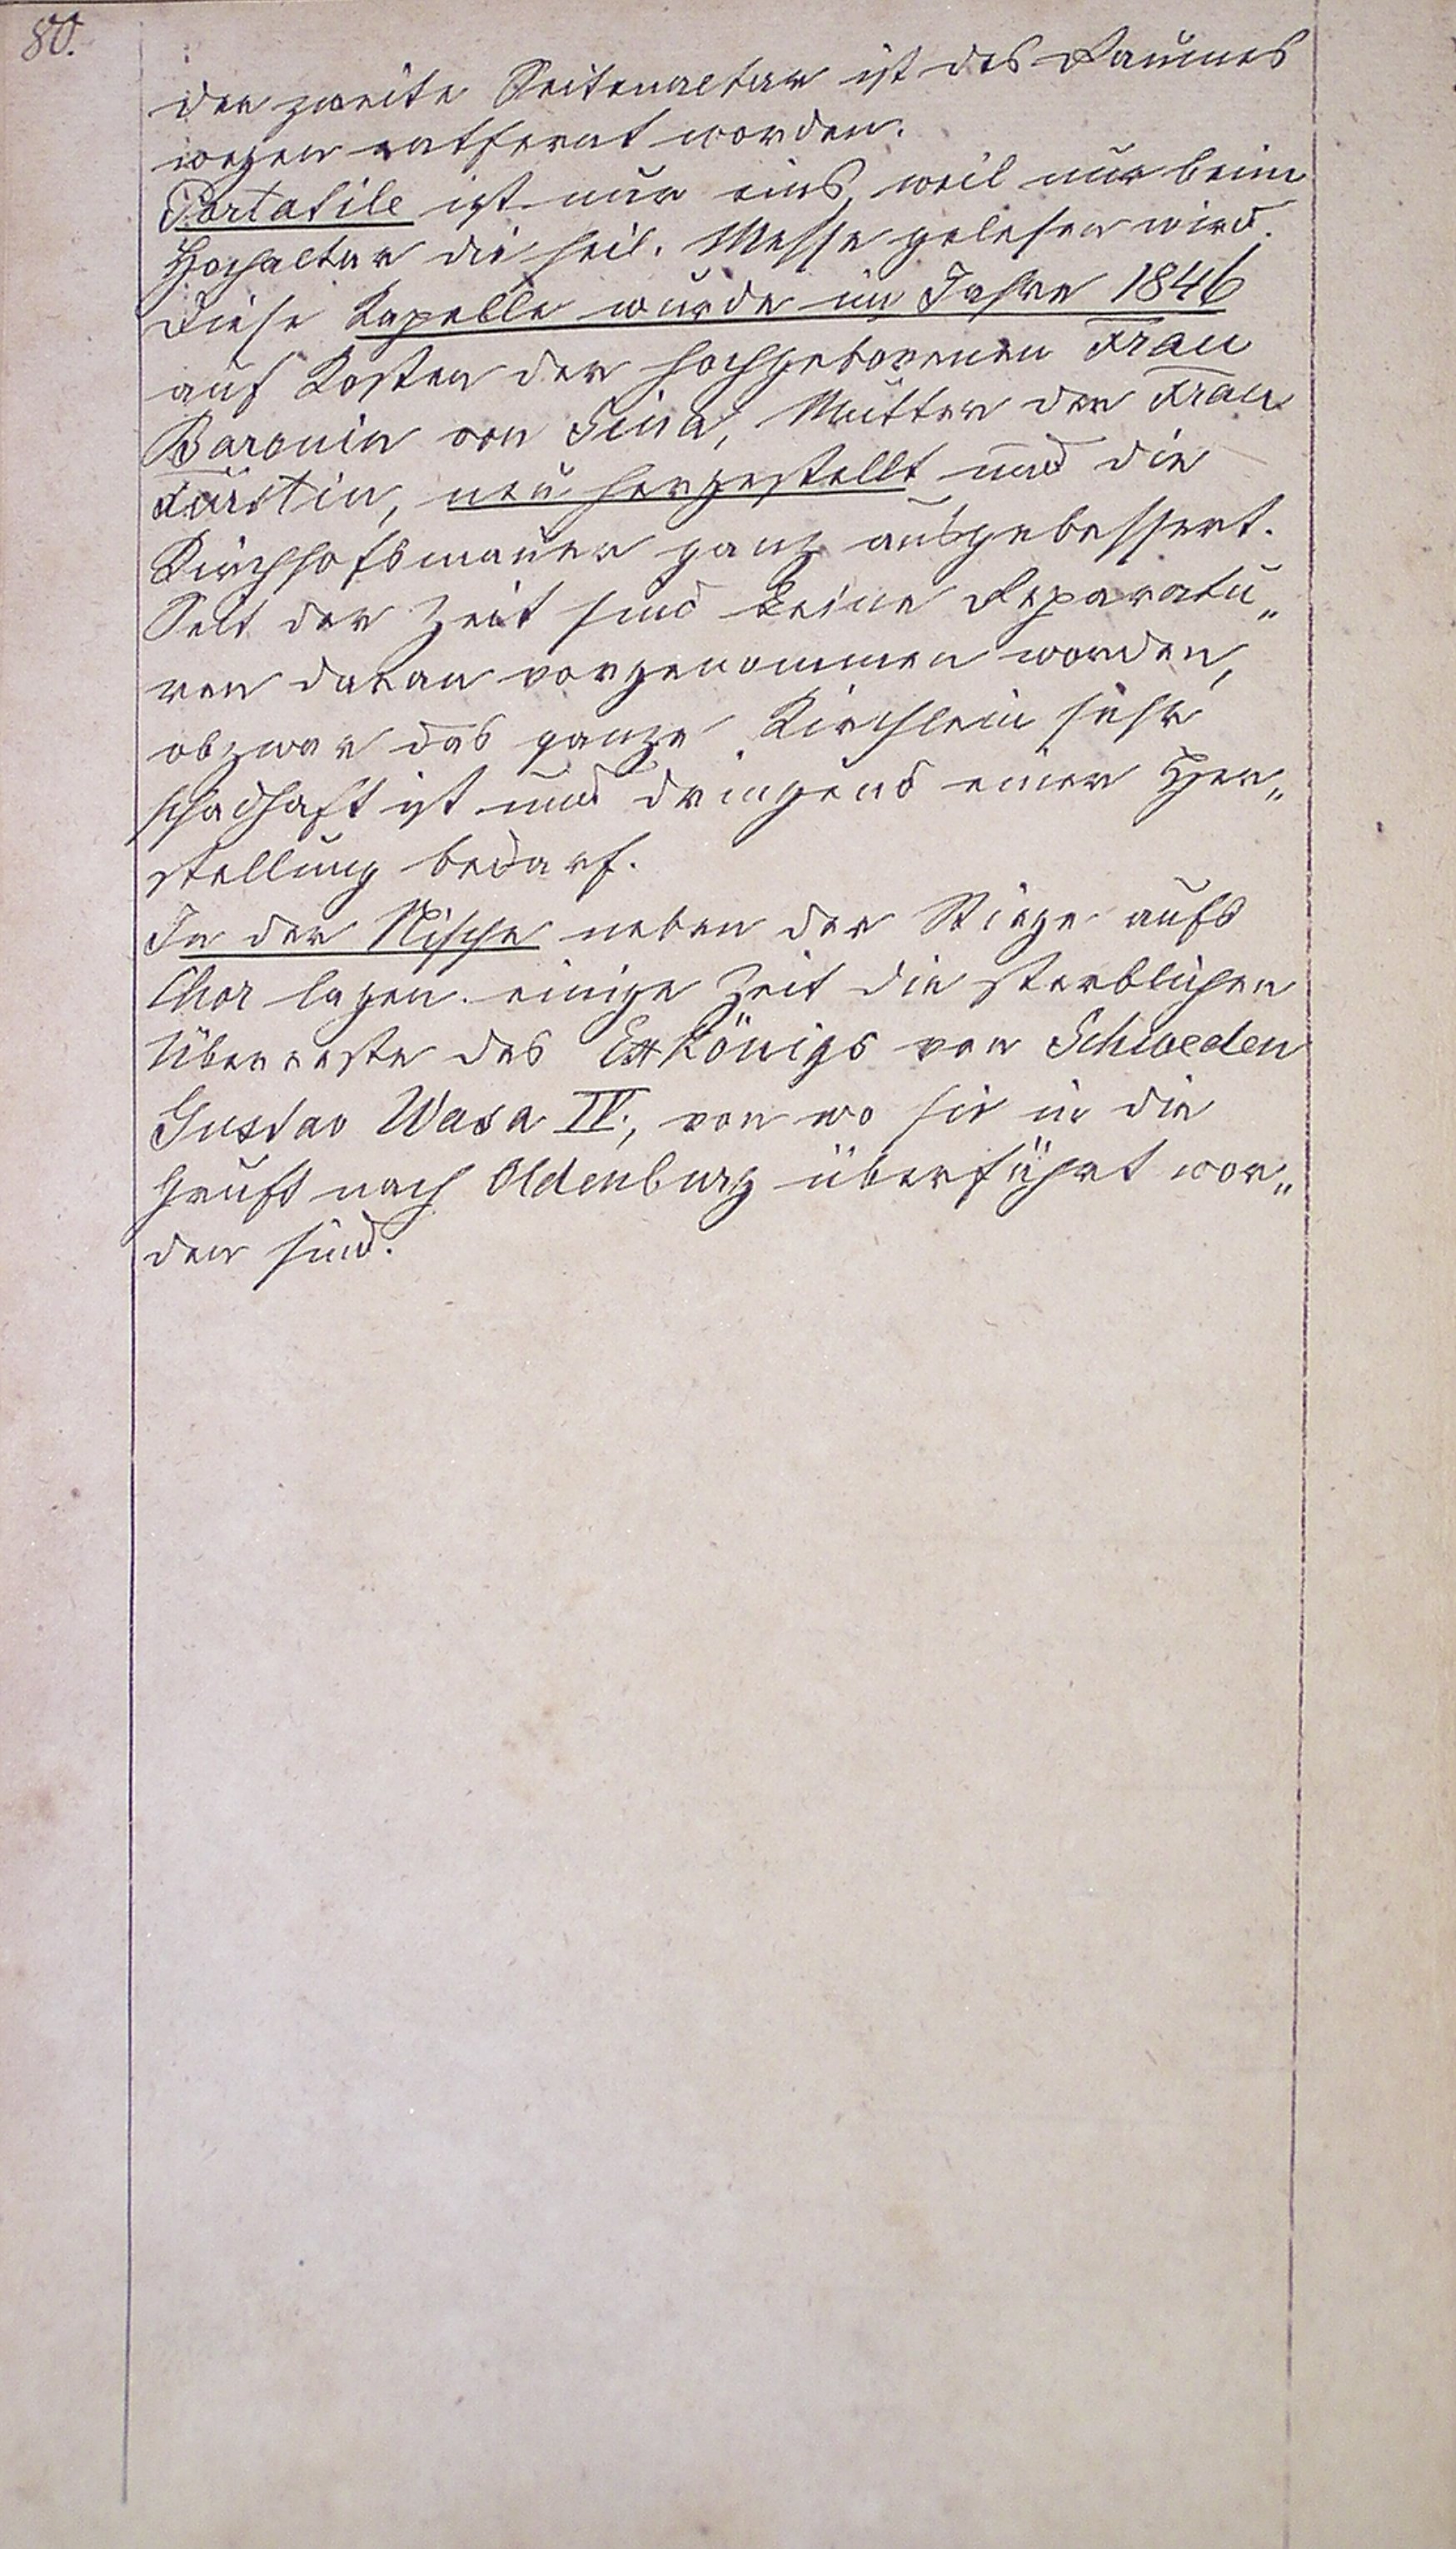 80.
der zweite Seitenaltar ist des Raumes
wegen entfernt worden.
Portatile ist nur eins, weil nur beim
Hochaltar die heil. Messe gelesen wird.
Diese Kapelle wurde im Jahre 1846
auf Kosten der hochgeborenen Frau
Baronin von Sina, Mutter der Frau
Fürstin, neu hergestellt und die
Kirchhofsmauer ganz ausgebessert.
Seit der Zeit sind keine Reparatu„
ren daran vorgenommen worden,
obzwar das ganze Kirchlein sehr
schadhaft ist und dringend einer Her„
stellung bedarf.
In der Nische neben der Stiege aufs
Chor lagen einige Zeit die sterblichen
Überreste des ExKönigs von Schweden
Gustav Wasa IV., von wo sie in die
Gruft nach Oldenburg überführt wor„
den sind.